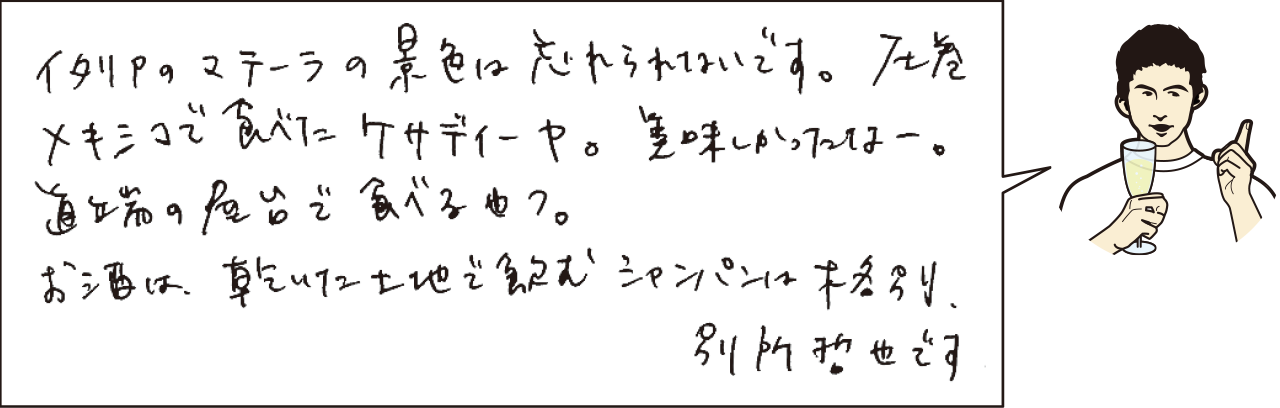 イタリアのマテーラの景色は忘れられないです。圧巻
メキシコで食べたケサディーヤ。美味しかったなー。
道端の屋台で食べるやつ。
お酒は、乾いた土地で飲むシャンパンは格別、
別所哲也です